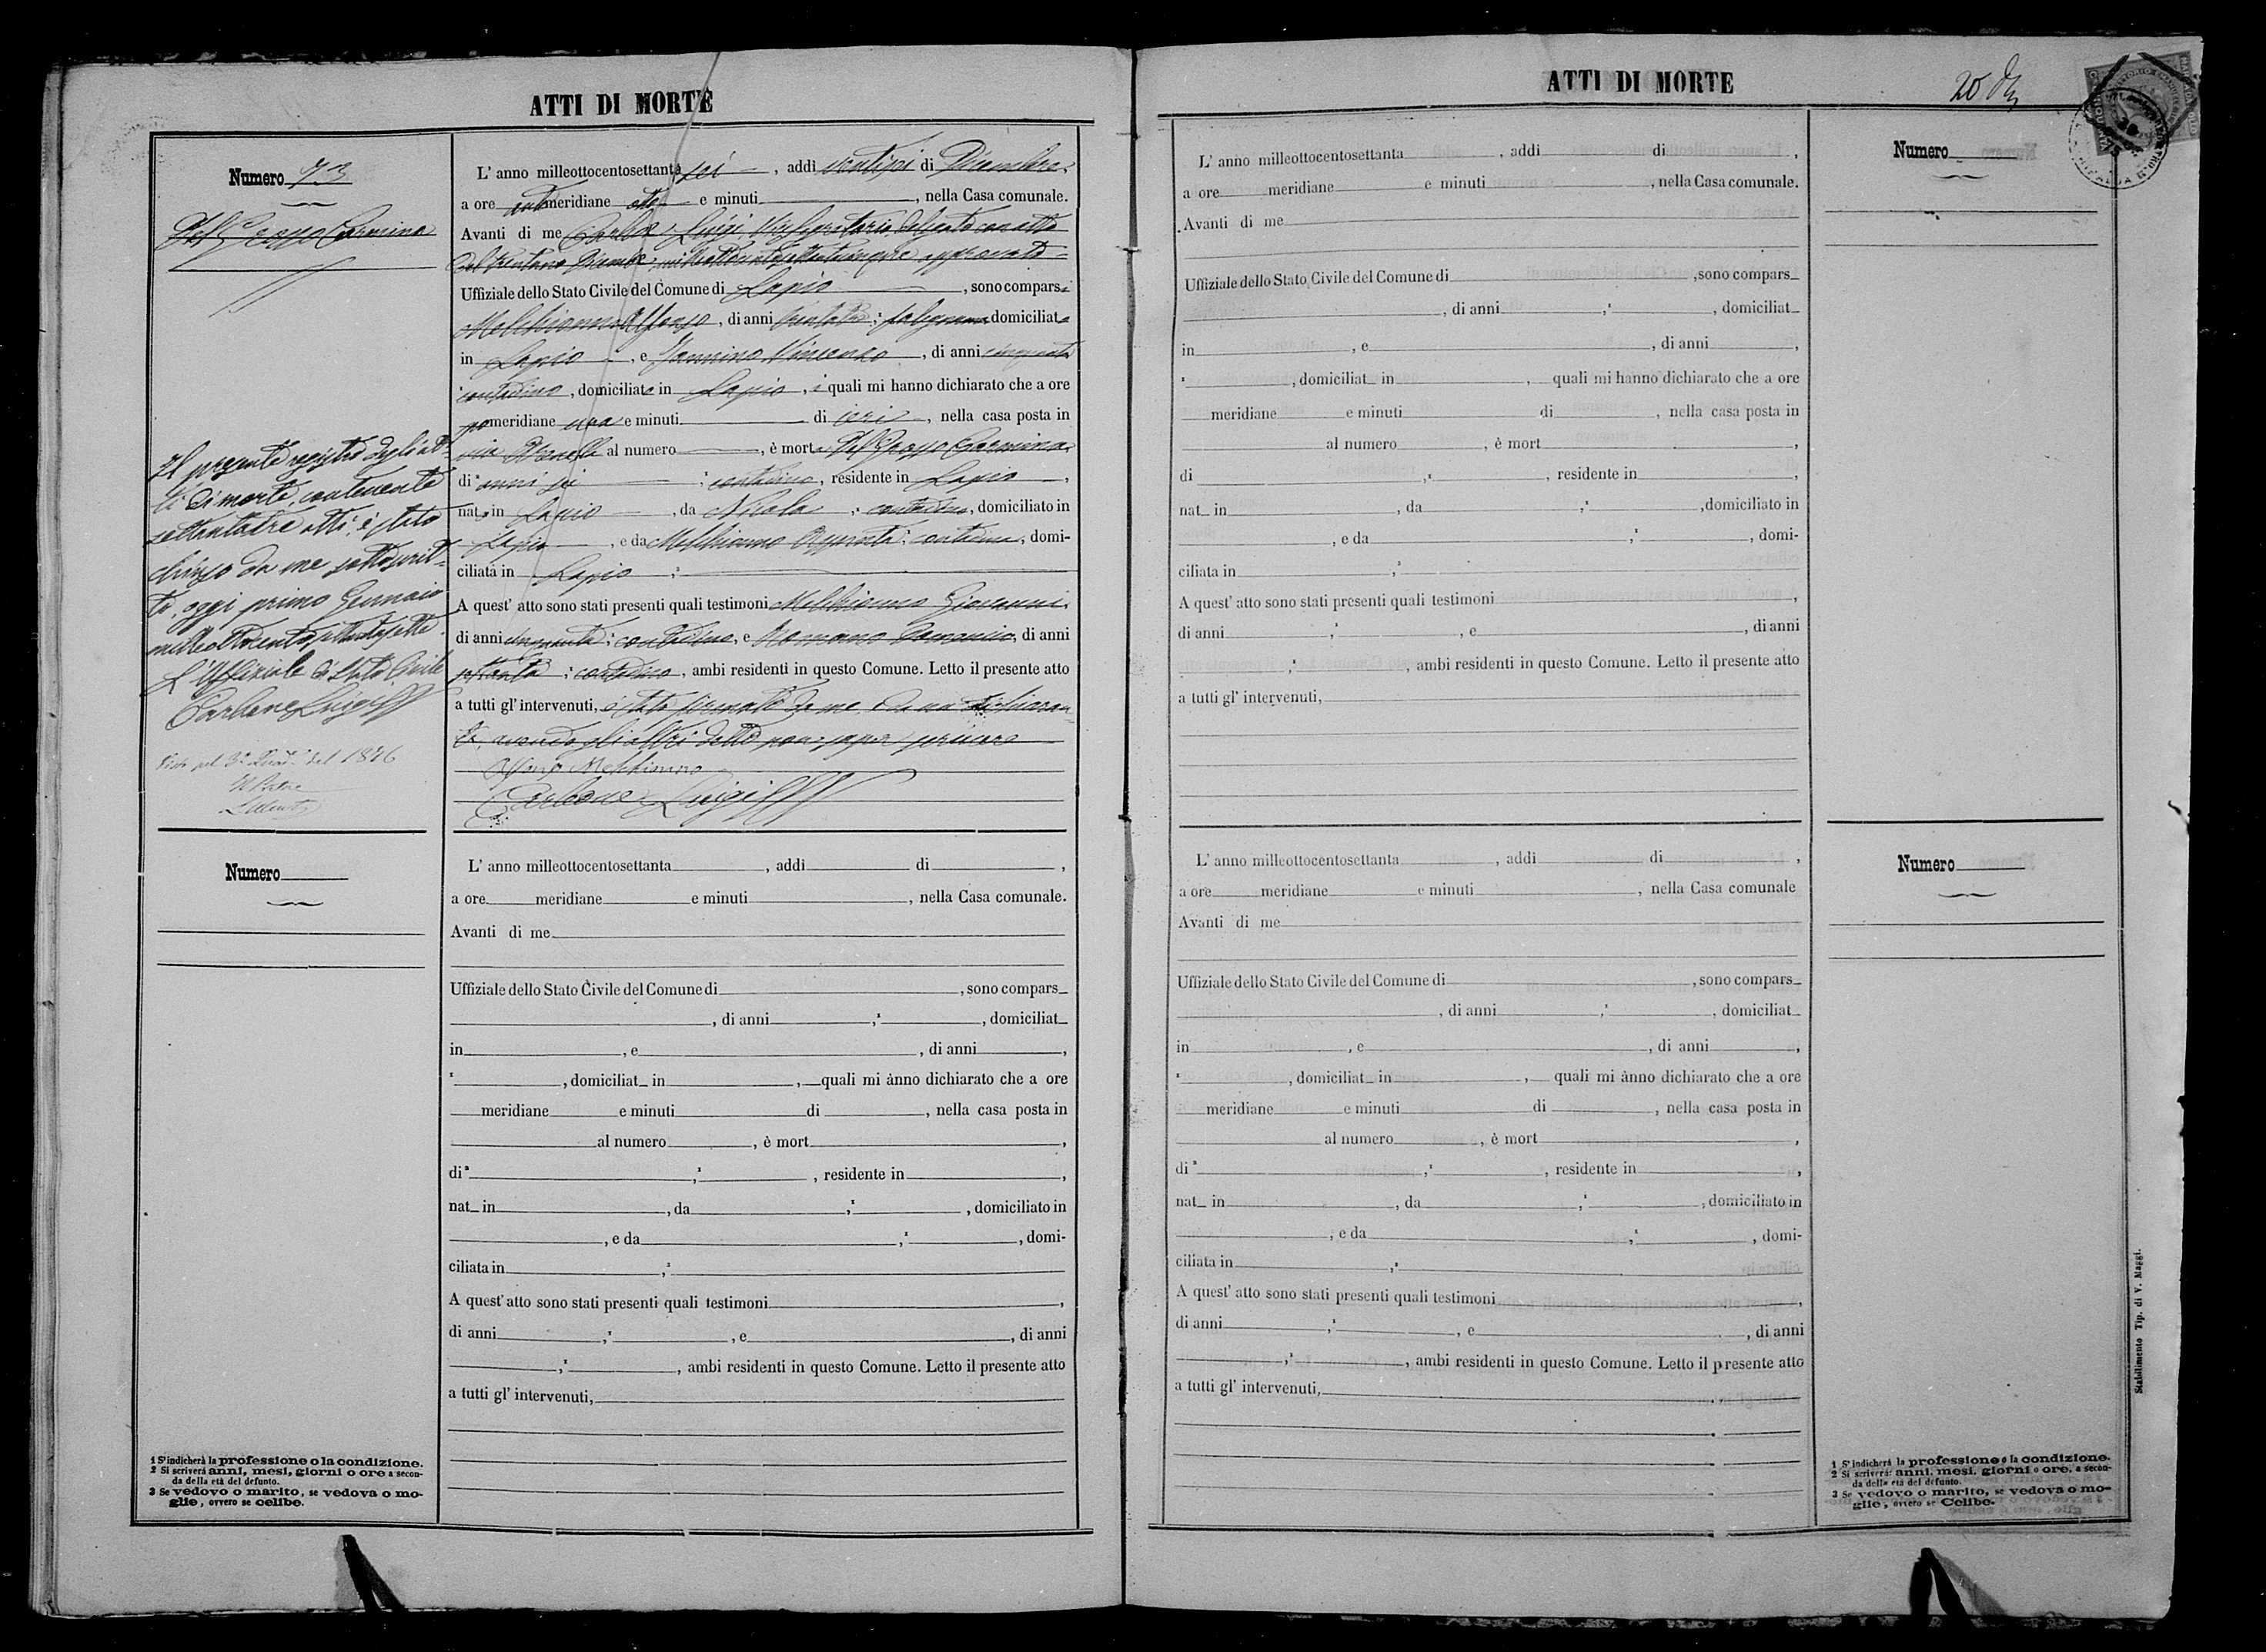 ATTI DI MORTE
Numero 73
Dell'Grosso Carmina
L' anno milleottocentosettanta sei, addì ventisei di Dicembre,
a ore antimeridiane otto e minuti , nella Casa comunale.
Avanti di me Carbone Luigi Segretario delegato con atto
del trentuno milleottocentosettantacinque approvato
Uffiziale dello Stato Civile del Comune di Lapio , sono comparsi
Melchionno Alfonso, di anni trentatre; falegname domiciliato
in Lapio , e Iannino Vincenzo , di anni cinquanta
contadino, domiciliato in Lapio , i quali mi hanno dichiarato che a ore
pomeridiane una e minuti di ieri , nella casa posta in
via al numero , è morta Carmina
di anni sei ; contadina, residente in Lapio ,
nata in Lapio , da Nicola , contadino, domiciliato in
Lapio , e da Melchionno ; contadina, domi-
ciliata in Lapio ;
A quest' atto sono stati presenti quali testimoni Melchionno Giovanni,
di anni cinquanta; contadino, e Romano Domenico, di anni
settanta ; contadino, ambi residenti in questo Comune. Letto il presente atto
a tutti gl' intervenuti, è stato firmato da me e da un dichiaran-
te, avendo gli altri detto non saper scrivere
Alfonso Melchionno
Carbone Luigi
Il presente registro degli at-
ti di morte, contenente
settantatre atti, è stato
chiuso da me sottoscrit-
to, oggi primo Gennaio
milleottocentosettantasette.
L'Uffiziale di Stato Civile
Carbone Luigi
del 1876
L' anno milleottocentosettanta , addì di ,
Numero
a ore meridiane e minuti , nella Casa comunale.
Avanti di me
Uffiziale dello Stato Civile del Comune di , sono compars
, di anni ,² , domiciliat
in , e , di anni ,
, domiciliat in , quali mi ànno dichiarato che a ore
meridiane e minuti di , nella casa posta in
al numero , è mort ,
di , , residente in ,
nat in , da , , domiciliato in
, e da , , domi-
ciliata in ,
A quest' atto sono stati presenti quali testimoni ,
di anni , , e , di anni
, , ambi residenti in questo Comune. Letto il presente atto
a tutti gl' intervenuti,
1 S'indicherà la professione o la condizione.
2 Si scriverà anni, mesi, giorni o ore a secon-
da della età del defunto.
3 Se vedovo o marito, se vedova o mo-
glie, ovvero se celibe.
ATTI DI MORTE
L' anno milleottocentosettanta , addì di ,
Numero
a ore meridiane e minuti , nella Casa comunale.
Avanti di me
Uffiziale dello Stato Civile del Comune di , sono compars
, di anni , , domiciliat
in , e , di anni ,
, domiciliat in , quali mi hanno dichiarato che a ore
meridiane e minuti di , nella casa posta in
al numero , è mort ,
di , , residente in ,
nat in , da , , domiciliato in
, e da , , domi-
ciliata in ,
A quest' atto sono stati presenti quali testimoni ,
di anni , , e , di anni
, , ambi residenti in questo Comune. Letto il presente atto
a tutti gl' intervenuti,
L' anno milleottocentosettanta , addì di ,
Numero
a ore meridiane e minuti , nella Casa comunale
Avanti di me
Uffiziale dello Stato Civile del Comune di , sono compars
, di anni , , domiciliat
in , e , di anni ,
, domiciliat in , quali mi ànno dichiarato che a ore
meridiane e minuti di , nella casa posta in
al numero , è mort ,
di , , residente in ,
nat in , da , , domiciliato in
, e da , , domi-
ciliata in ,
A quest' atto sono stati presenti quali testimoni ,
di anni , , e , di anni
, , ambi residenti in questo Comune. Letto il presente atto
a tutti gl' intervenuti,
1 S'indicherà la professione o la condizione.
2 Si scriverà: anni, mesi, giorni o ore, a secon-
da della età del defunto.
3 Se vedovo o marito, se vedova o mo-
glie, ovvero se Celibe.
Stabilimento Tip. di V. Maggi.